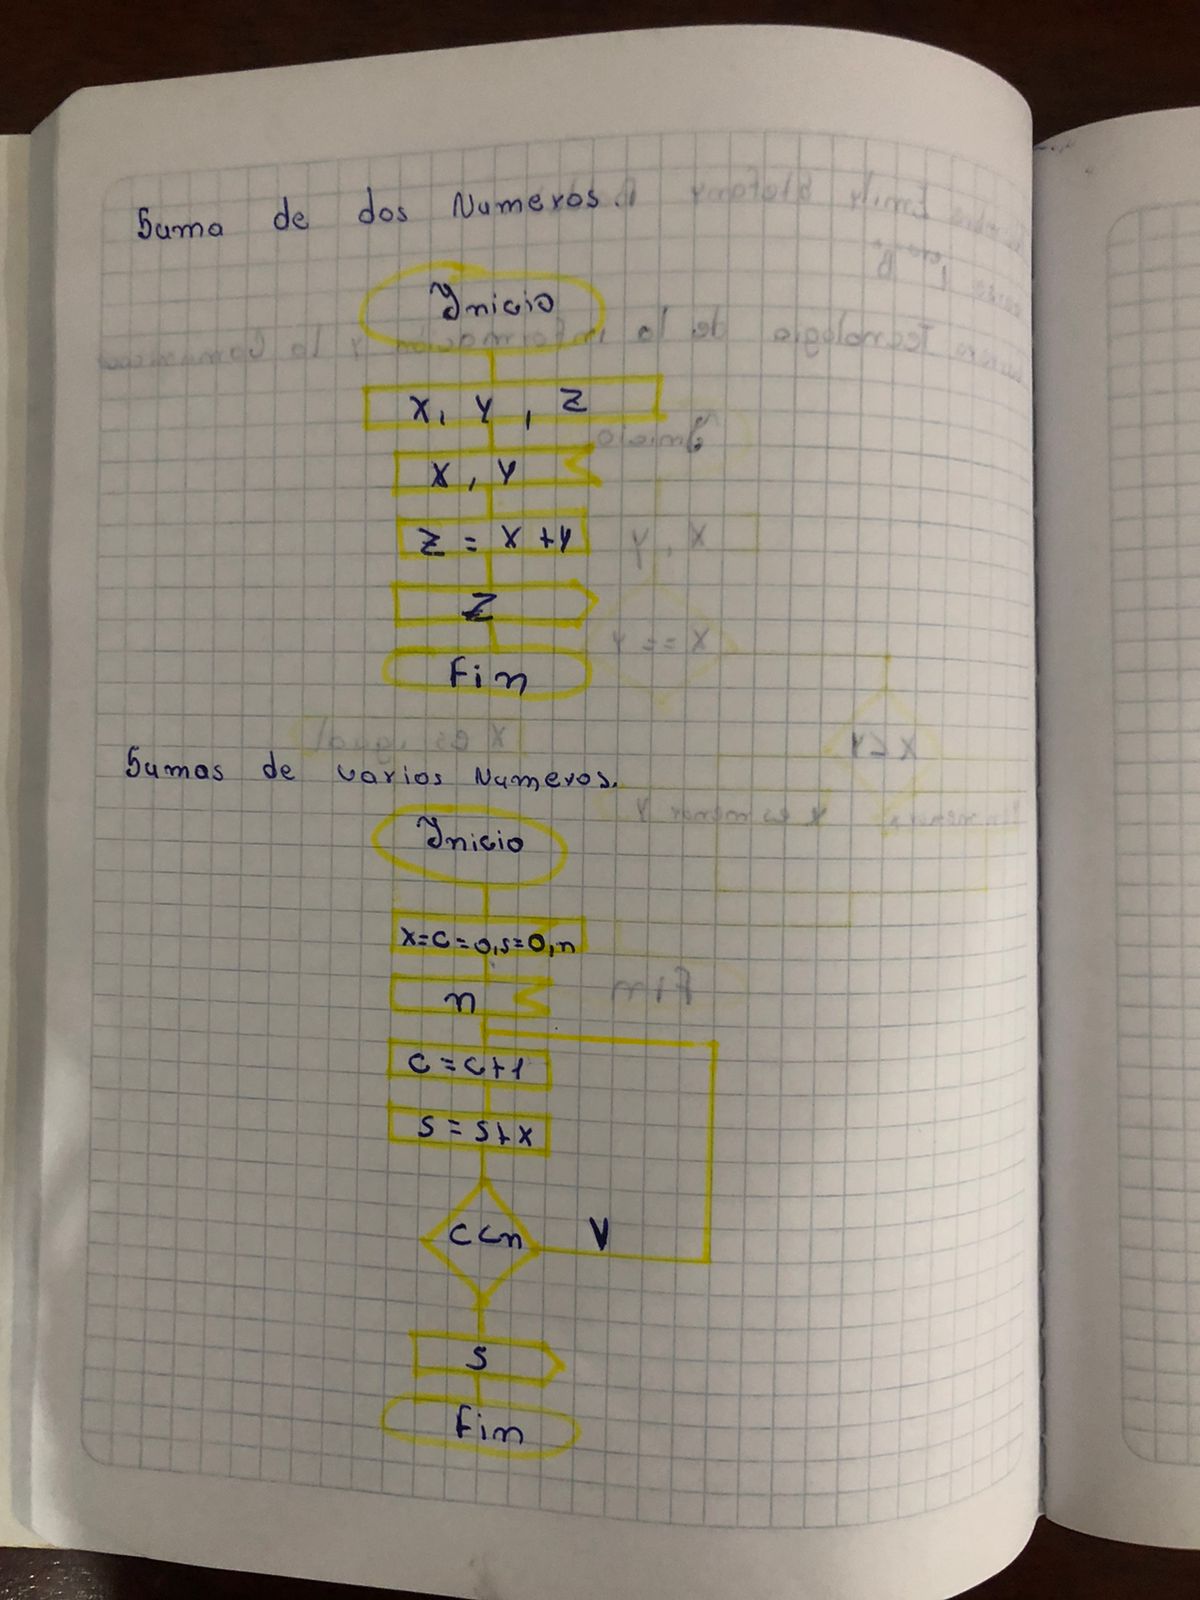 Suma de dos Numeros.
Inicio
X, Y, Z
X, Y
Z = X + Y
Z
Fin
Sumas de varios Numeros.
Inicio
X=C=0,S=0,n
n
C = C+1
S = S+X
C<n V
S
Fin